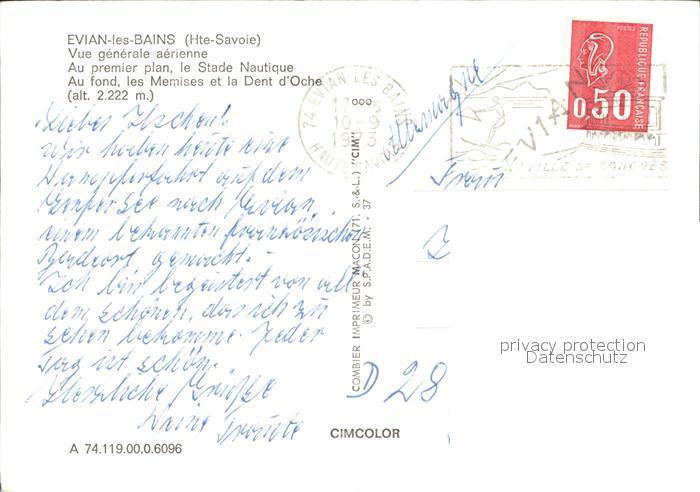 EVIAN-les-BAINS (Hte-Savoie)
Vue générale aérienne
Au premier plan, le Stade Nautique
Au fond, les Memises et la Dent d'Oche
(alt. 2.222 m.)
Liebes
Wir haben heute eine
Dampferfahrt auf dem
Genfer See nach Evian,
einem bekannten französischen
Badeort gemacht. -
Ich bin begeistert von all
dem schönen, das ich zu
sehen bekomme. Jeder
Tag ist schön.
Herzliche Grüße
Deine
Traute
A 74.119.00.0.6096
74 EVIAN LES BAINS
10-9
HAUTE SAVOIE
"CIM"
COMBIER IMPRIMEUR MACON (71. S.-&-L.)
© by S.P.A.D.E.M. - 37
CIMCOLOR
Allemagne
EVIAN
VILLE DE CONGRES
REPUBLIQUE FRANÇAISE
0,50
Frau
D 28
privacy protection
Datenschutz